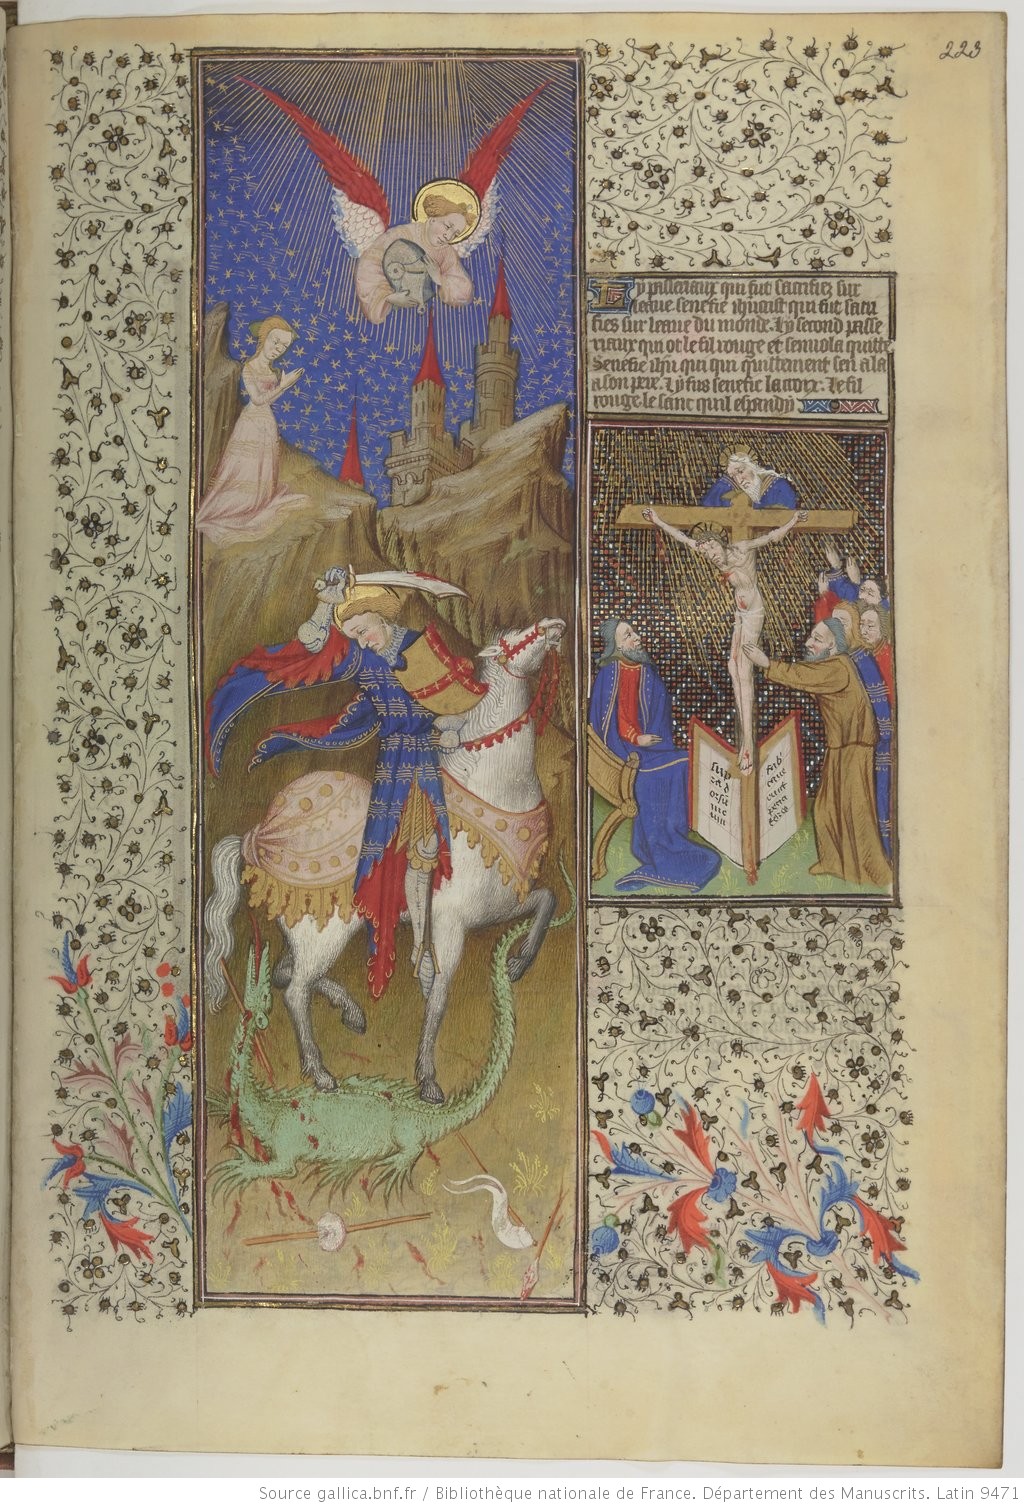 223
Ly passeriaux qui fut sacrifiez sur
leaue senefie ihucrist qui fut sacri
fies sur leaue du monde. Ly second passe
riaux qui ot le fil rouge et senuola quitte
Senefie ihu qui qui quittement sen ala
a son pere. Ly fus senefie la croix. Le fil
rouge le sanc quil espandy
Source gallica.bnf.fr / Bibliothèque nationale de France. Département des Manuscrits. Latin 9471